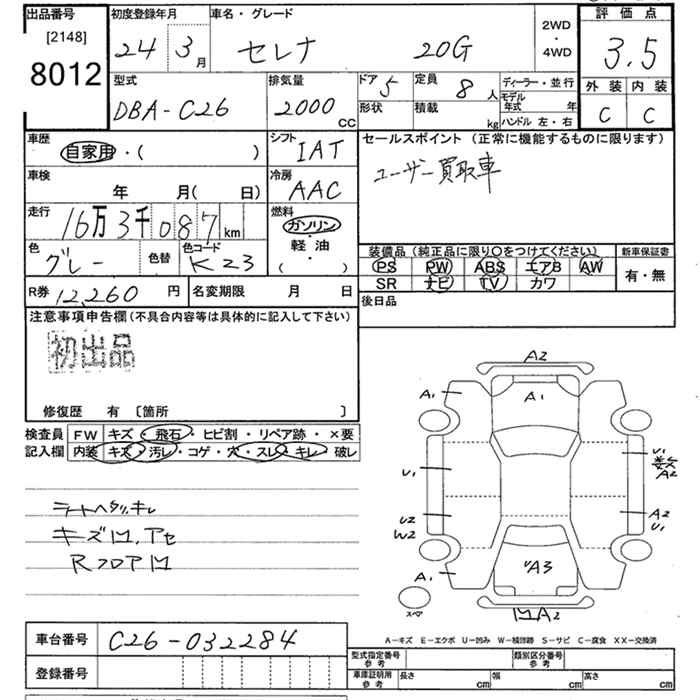 出品番号
[2148]
8012
初度登録年月
24 3月
車名・グレード
セレナ 20G
2WD
・
4WD
評価点
3.5
外装 内装
C C
型式
DBA-C26
排気量
2000cc
ドア 5
形状
定員 8人
積載 kg
ディーラー・並行
モデル年式 年
ハンドル 左・右
車歴
自家用・( )
シフト
IAT
セールスポイント (正常に機能するものに限ります)
ユーザー買取車
車検
年 月( 日)
冷房
AAC
走行
16万3千087km
燃料
ガソリン
・
軽油
( )
色
グレー
色替
色コード
K23
装備品 (純正品に限り○をつけてください)
PS PW ABS エアB AW
SR ナビ TV カワ
新車保証書
有・無
R券 12,260円
名変期限 月 日
後日品
注意事項申告欄 (不具合内容等は具体的に記入して下さい)
初出品
修復歴 有 〔箇所 〕
検査員
記入欄
FW キズ・飛石・ヒビ割・リペア跡・×要
内装 キズ・汚レ・コゲ・穴・スレ・キレ・破レ
シートヘタリ、キレ
キズM、アセ
RフロアM
A2
A1
A1
U1
U1
数
A2
U2
W2
A2
U1
A1
UA3
MA2
スペア
A-キズ E-エクボ U-凹み W-補修跡 S-サビ C-腐食 XX-交換済
車台番号
C26-032284
登録番号
型式指定番号
参考
類別区分番号
参考
車庫証明用
参考
長さ cm
幅 cm
高さ cm